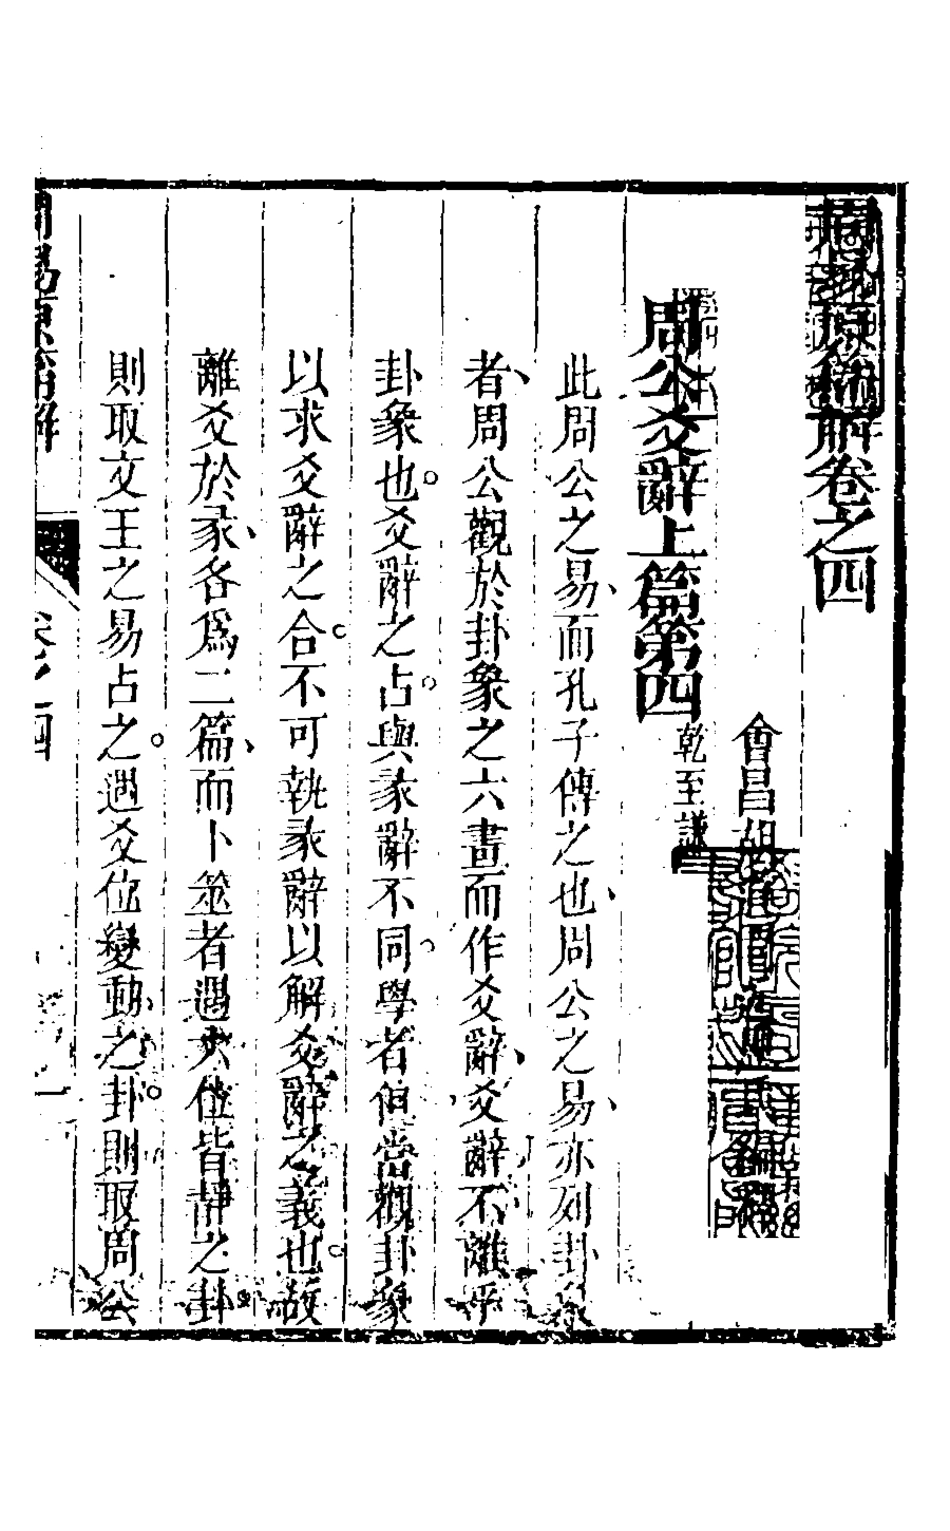 周易原篇解卷之四
會昌胡
周公爻辭上篇第四乾至謙
此周公之易而孔子傳之也周公之易亦列卦象
者周公觀於卦象之六畫而作爻辭爻辭不離乎
卦象也爻辭之占與彖辭不同學者但當觀卦象
以求爻辭之合不可執彖辭以解爻辭之義也故
離爻於彖各爲二篇而卜筮者遇六位皆靜之卦
則取文王之易占之遇爻位變動之卦則取周公
卷之四
一